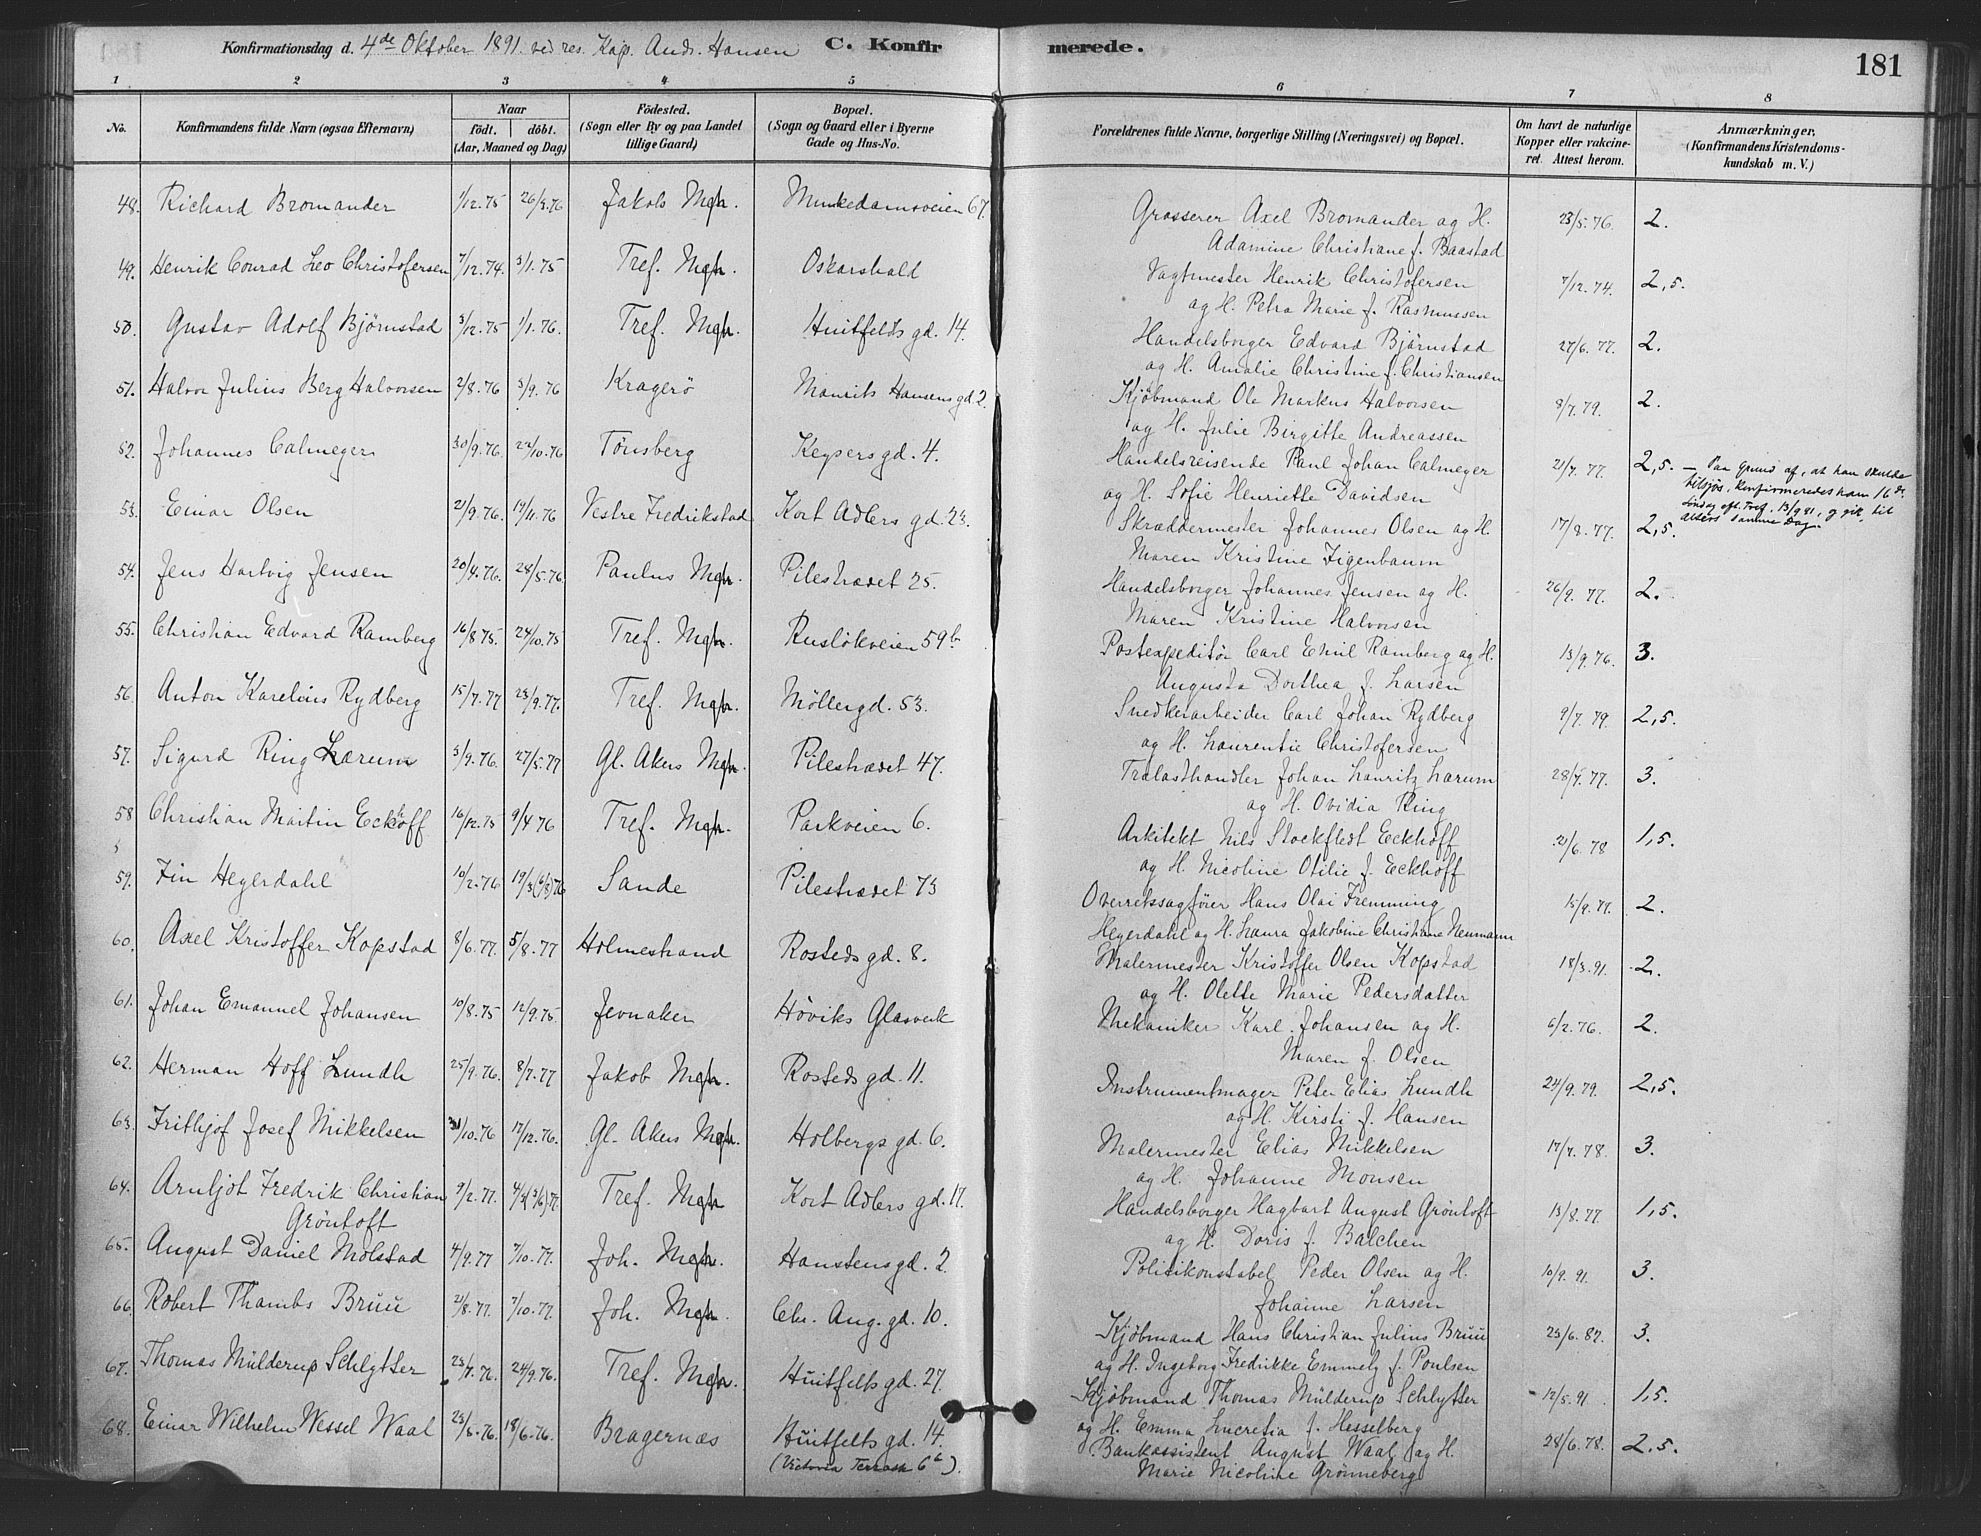 Konfirmationsdag d. 4de Oktober 1891 ved res. Kap. Andr. Hansen C. Konfirmerede. 181
1 2 3 4 5 6 7 8
No. Konfirmandens fulde Navn (ogsaa Efternavn) Naar födt. döbt. (Aar, Maaned og Dag) Födested. (Sogn eller By og paa Landet tillige Gaard) Bopæl. (Sogn og Gaard eller i Byerne Gade og Hus-No. Forældrenes fulde Navne, borgerlige Stilling (Næringsvei) og Bopæl. Om havt de naturlige Kopper eller vakcineret. Attest herom. Anmærkninger. (Konfirmandens Kristendomskundskab m. V.)
48. Richard Bromander 1/12.75 26/3.76 Jakobs Mgh. Munkedamsveien 67. Grosserer Axel Bromander og H. 23/5.76. 2.
Adamine Christiane f. Baastad
49. Henrik Conrad Leo Christofersen 7/12.74. 3/1.75 Tref. Mgh. Oskarshald Vagtmester Henrik Christofersen 7/12.74. 2,5.
og H. Petra Marie f. Rasmussen
50. Gustav Adolf Bjørnstad 3/12.75 1/1.76. Tref. Mgh. Huitfelds gd. 14. Handelsborger Edvard Bjørnstad 27/6.77. 2.
og H. Amalie Christine f. Christiansen
51. Halvor Julius Berg Halvorsen 2/8.76 3/9.76 Kragerö Maurits Hansens gd 2. Kjöbmand Ole Markus Halvorsen 8/7.79. 2.
og H. Julie Birgitte Andreassen
52. Johannes Calmeyer 30/9.76. 22/10.76 Tönsberg Keysers gd. 4. Handelsreisende Paul Johan Calmeyer 21/7.77. 2,5. — Paa Grund af, at han skulde
tilsjös, konfirmeredes ham 16de
og H. Sofie Henriette Davidsen Söndag eft. Tref. 13/9 91, og gik til
53. Einar Olsen 21/9.76. 14/11.76 Vestre Fredrikstad Kort Adlers gd. 23. Skræddermester Johannes Olsen og H. 17/8.77. 2,5. alters samme Dag.
Maren Kristine Figenbaum
54. Jens Hartvig Jensen 20/4.76. 28/5.76. Paulus Mgh. Pilestrædet 25. Handelsborger Johannes Jensen og H. 26/9.77. 2.
Maren Kristine Halvorsen
55. Christian Edvard Ramberg 16/8.75. 24/10.75 Tref. Mgh. Rusløkveien 59b Postexpeditör Carl Emil Ramberg og H. 13/9.76. 3.
Augusta Dorthea f. Larsen
56. Anton Karelius Rydberg 15/7.77 23/9.77. Tref. Mgh. Möllergd. 53. Snedkerarbeider Carl Johan Rydberg 9/7.79. 2,5.
og H. Laurentie Christofersen
57. Sigurd Ring Lærum 3/9.76. 27/5.77 Gl. Akers Mgh. Pilestrædet 47. Trælasthandler Johan Lauritz Lærum 28/7.77. 3.
og H. Ovidia Ring
58 Christian Martin Eckhoff 16/12.75 9/4 76 Tref. Mgh. Parkveien 6. Arkitekt Nils Stockfledt Eckhoff 21/6.78 1,5.
og H. Nicoline Otilie f. Eckhoff
59. Fin Heyerdahl 10/2.76 19/3(6/8)76 Sande Pilestrædet 73 Overretssagförer Hans Olai Fremming 15/9.77. 2.
Heyerdahl og H. Laura Jakobine Christiane Neumann
60. Axel Kristoffer Kopstad 8/6.77. 5/8.77 Holmestrand Rosteds gd. 8. Malermester Kristoffer Olsen Kopstad 18/3.91. 2.
og H. Olette Marie Pedersdatter
61. Johan Emanuel Johansen 10/8.75 12/9.75. Jevnaker Höviks Glasverk Mekaniker Karl Johansen og H. 6/2.76. 2.
Maren f. Olsen
62. Herman Hoff Lundh 25/9.76. 8/7.77 Jakob Mgh. Rosteds gd. 11. Instrumentmager Peter Elias Lundh 24/9.79. 2,5.
og H. Kirsti f. Hansen
63. Frithjof Josef Mikkelsen 31/10.76 17/12.76. Gl. Akers Mgh. Holbergs gd. 6. Malermester Elias Mikkelsen 17/7.78. 3.
og H. Johanne Monsen
64. Arnljot Fredrik Christian 9/2.77. 4/3(3/6)77. Tref. Mgh Kort Adlers gd. 17. Handelsborger Hagbart August Gröntoft 13/8.77. 1,5.
Gröntoft og H. Doris f. Balchen
65. August Daniel Molstad 4/9.77 7/10.77. Joh. Mgh. Hanstens gd. 2. Politikonstabel Peder Olsen og H. 10/9.91. 3.
Johanne Larsen
66. Robert Thambs Bruu 21/8.77. 7/10.77. Joh. Mgh. Chr. Aug. gd. 10. Kjöbmand Hans Christian Julius Bruu 23/6.87. 3.
og H. Ingeborg Fredrikke Emmely f. Poulsen
67. Thomas Mülderup Schlytter 23/7.76. 24/9.76. Tref. Mgh. Huitfelts gd. 27. Kjöbmand Thomas Mülderup Schlytter 12/5.91. 1,5.
og H. Emma Lucretia f. Hesselberg
68. Einar Wilhelm Wessel Waal 23/5.76. 18/6.76. Bragernæs Huitfelts gd. 14. Bankassistent August Waal og H. 28/6.78. 2.5.
(Victoria Terrasse 6b). Marie Nicoline Grönneberg